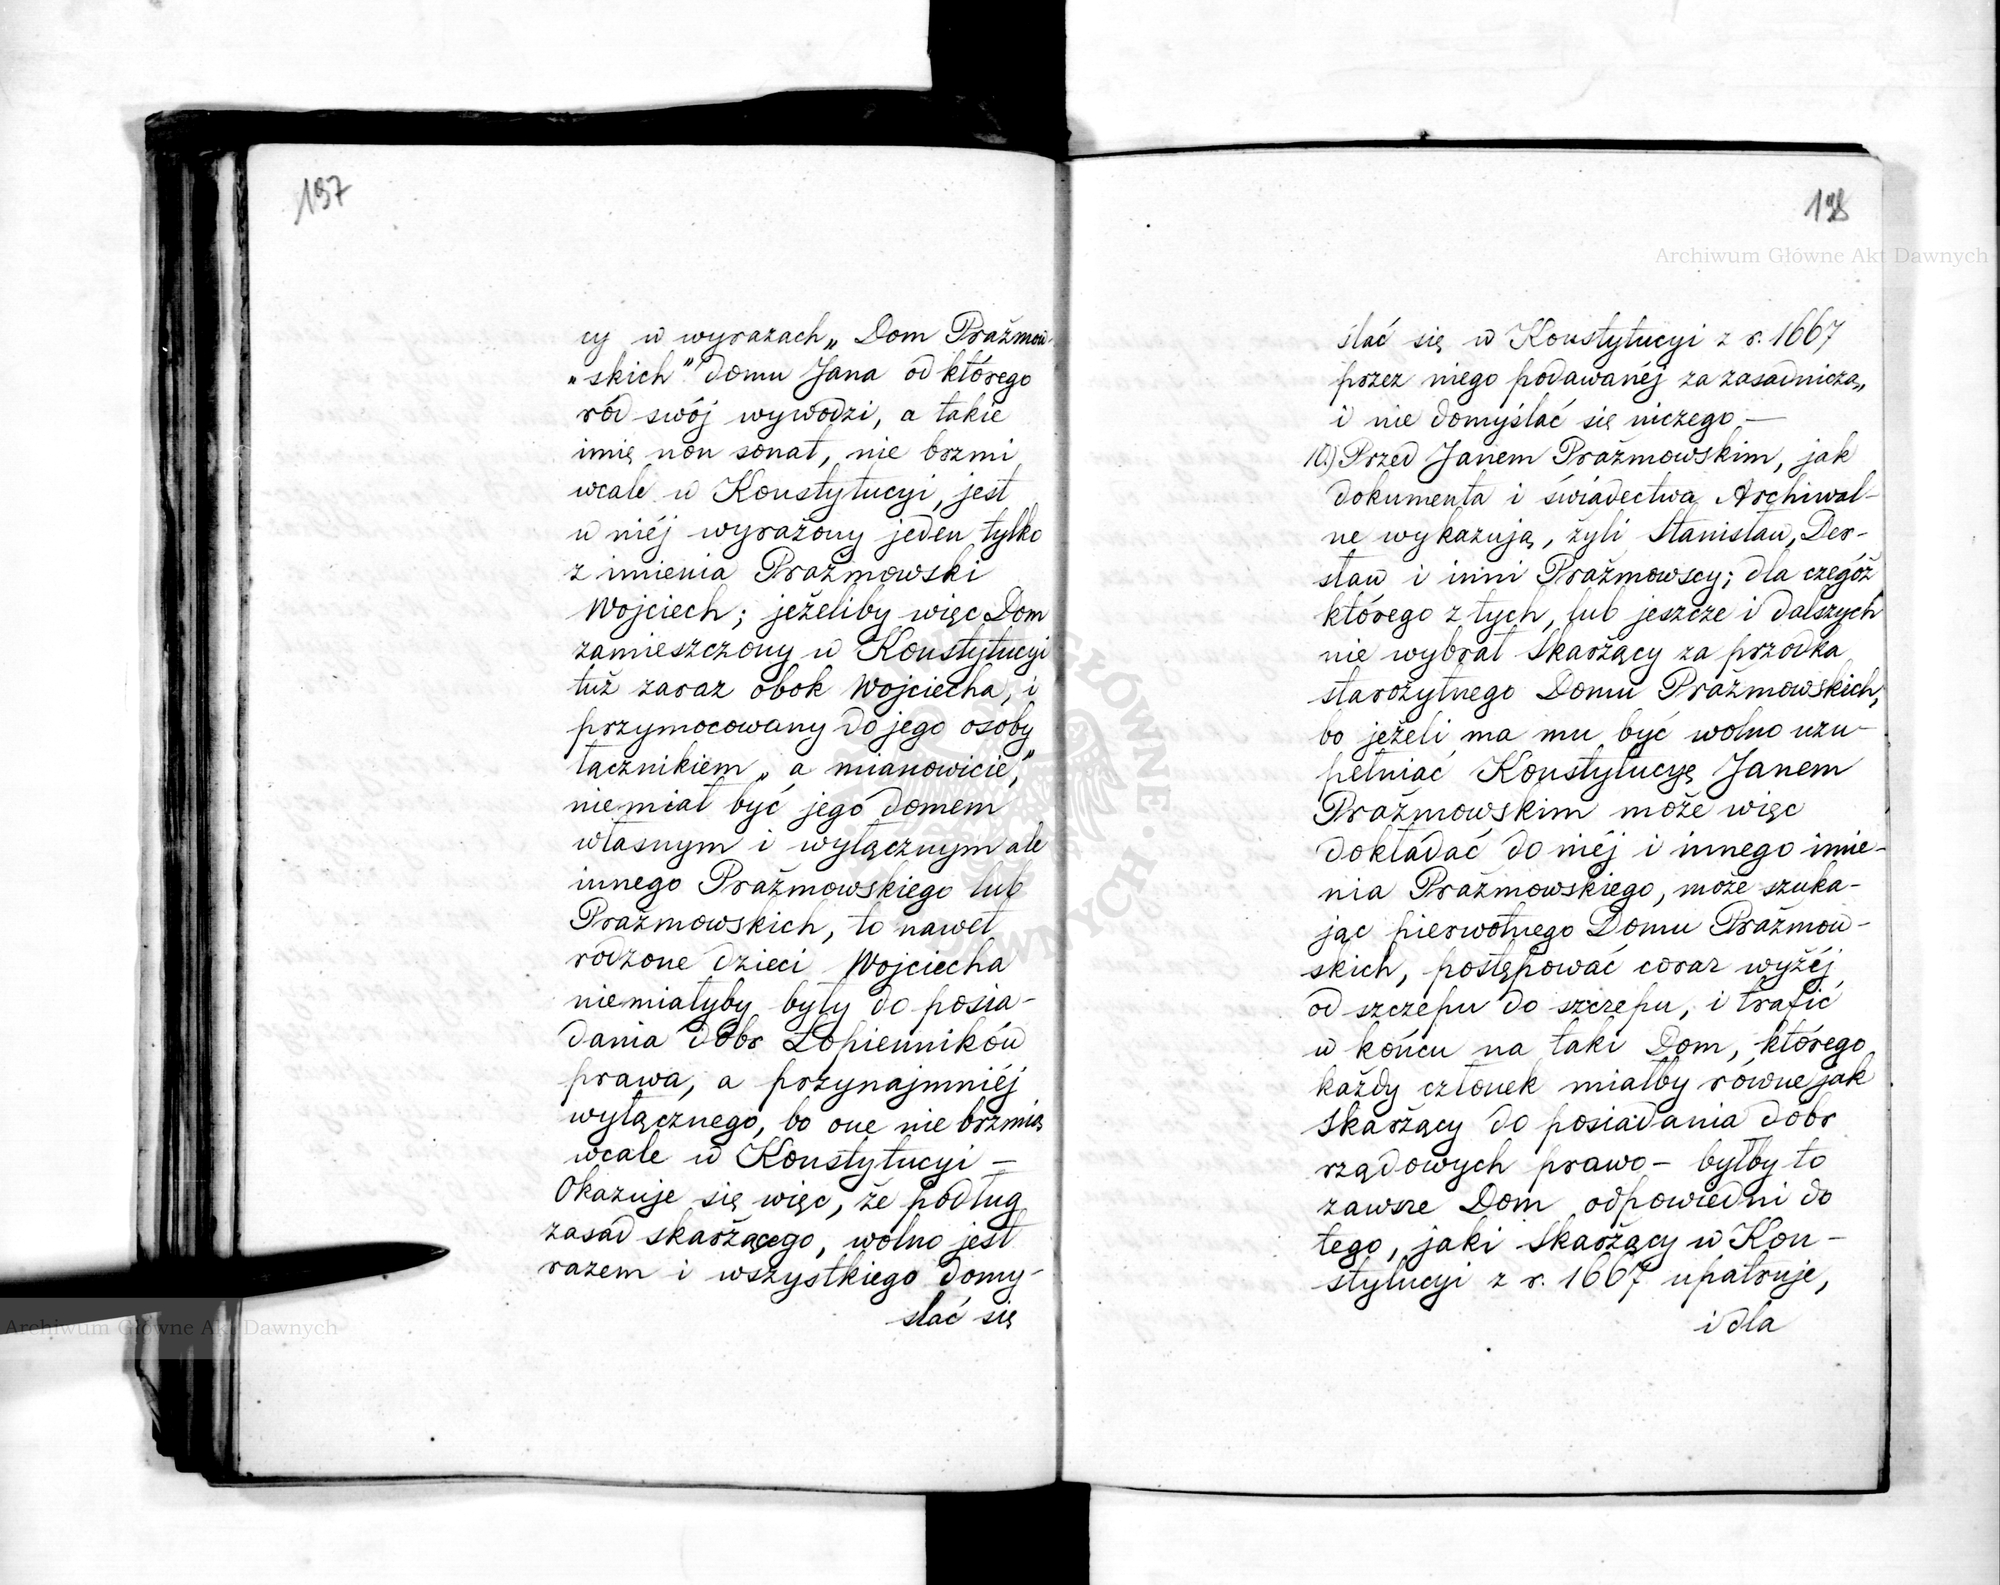 197
cy w wyrazach „Dom Prażmow-
„skich" domu Jana od którego
ród swój wywodzi, a takie
imię non sonat, nie brzmi
wcale w Konstytucyi, jest
w niéj wyrażony jeden tylko
z imienia Prażmowski
Wojciech; jeżeliby więc Dom
zamieszczony w Konstytucyi
tuż zaraz obok Wojciecha, i
przymocowany do jego osoby
łącznikiem „a mianowicie,"
niemiał być jego domem
własnym i wyłącznym ale
innego Prażmowskiego lub
Prażmowskich, to nawet
rodzone dzieci Wojciecha
niemiałyby były do posia-
dania dóbr Łopienników
prawa, a przynajmniéj
wyłącznego, bo one nie brzmią
wcale w Konstytucyi –
Okazuje się więc, że podług
zasad skarżącego, wolno jest
razem i wszystkiego domy-
slać się
198
ślać się w Konstytucyi z r. 1667
przez niego podawanéj za zasadniczą,
i nie domyślać się niczego –
10.) Przed Janem Prażmowskim, jak
dokumenta i świadectwa Archiwal-
ne wykazują, żyli Stanisław, Der-
sław i inni Prażmowscy; dla czegóż
którego z tych, lub jeszcze i dalszych
nie wybrał Skarżący za przodka
starożytnego Domu Prażmowskich,
bo jeżeli ma mu być wolno uzu-
pełniać Konstytucyę Janem
Prażmowskim może więc
dokładać do niéj i innego imie-
nia Prażmowskiego, może szuka-
jąc pierwotnego Domu Prażmow-
skich, postępować coraz wyżéj
od szczepu do szczepu, i trafić
w końcu na taki Dom, którego
każdy członek miałby równe jak
Skarżący do posiadania dóbr
rządowych prawo – byłby to
zawsze Dom odpowiedni do
tego, jaki Skarżący w Kon-
stytucyi z r. 1667 upatruje,
i dla
Archiwum Główne Akt Dawnych
Archiwum Główne Akt Dawnych